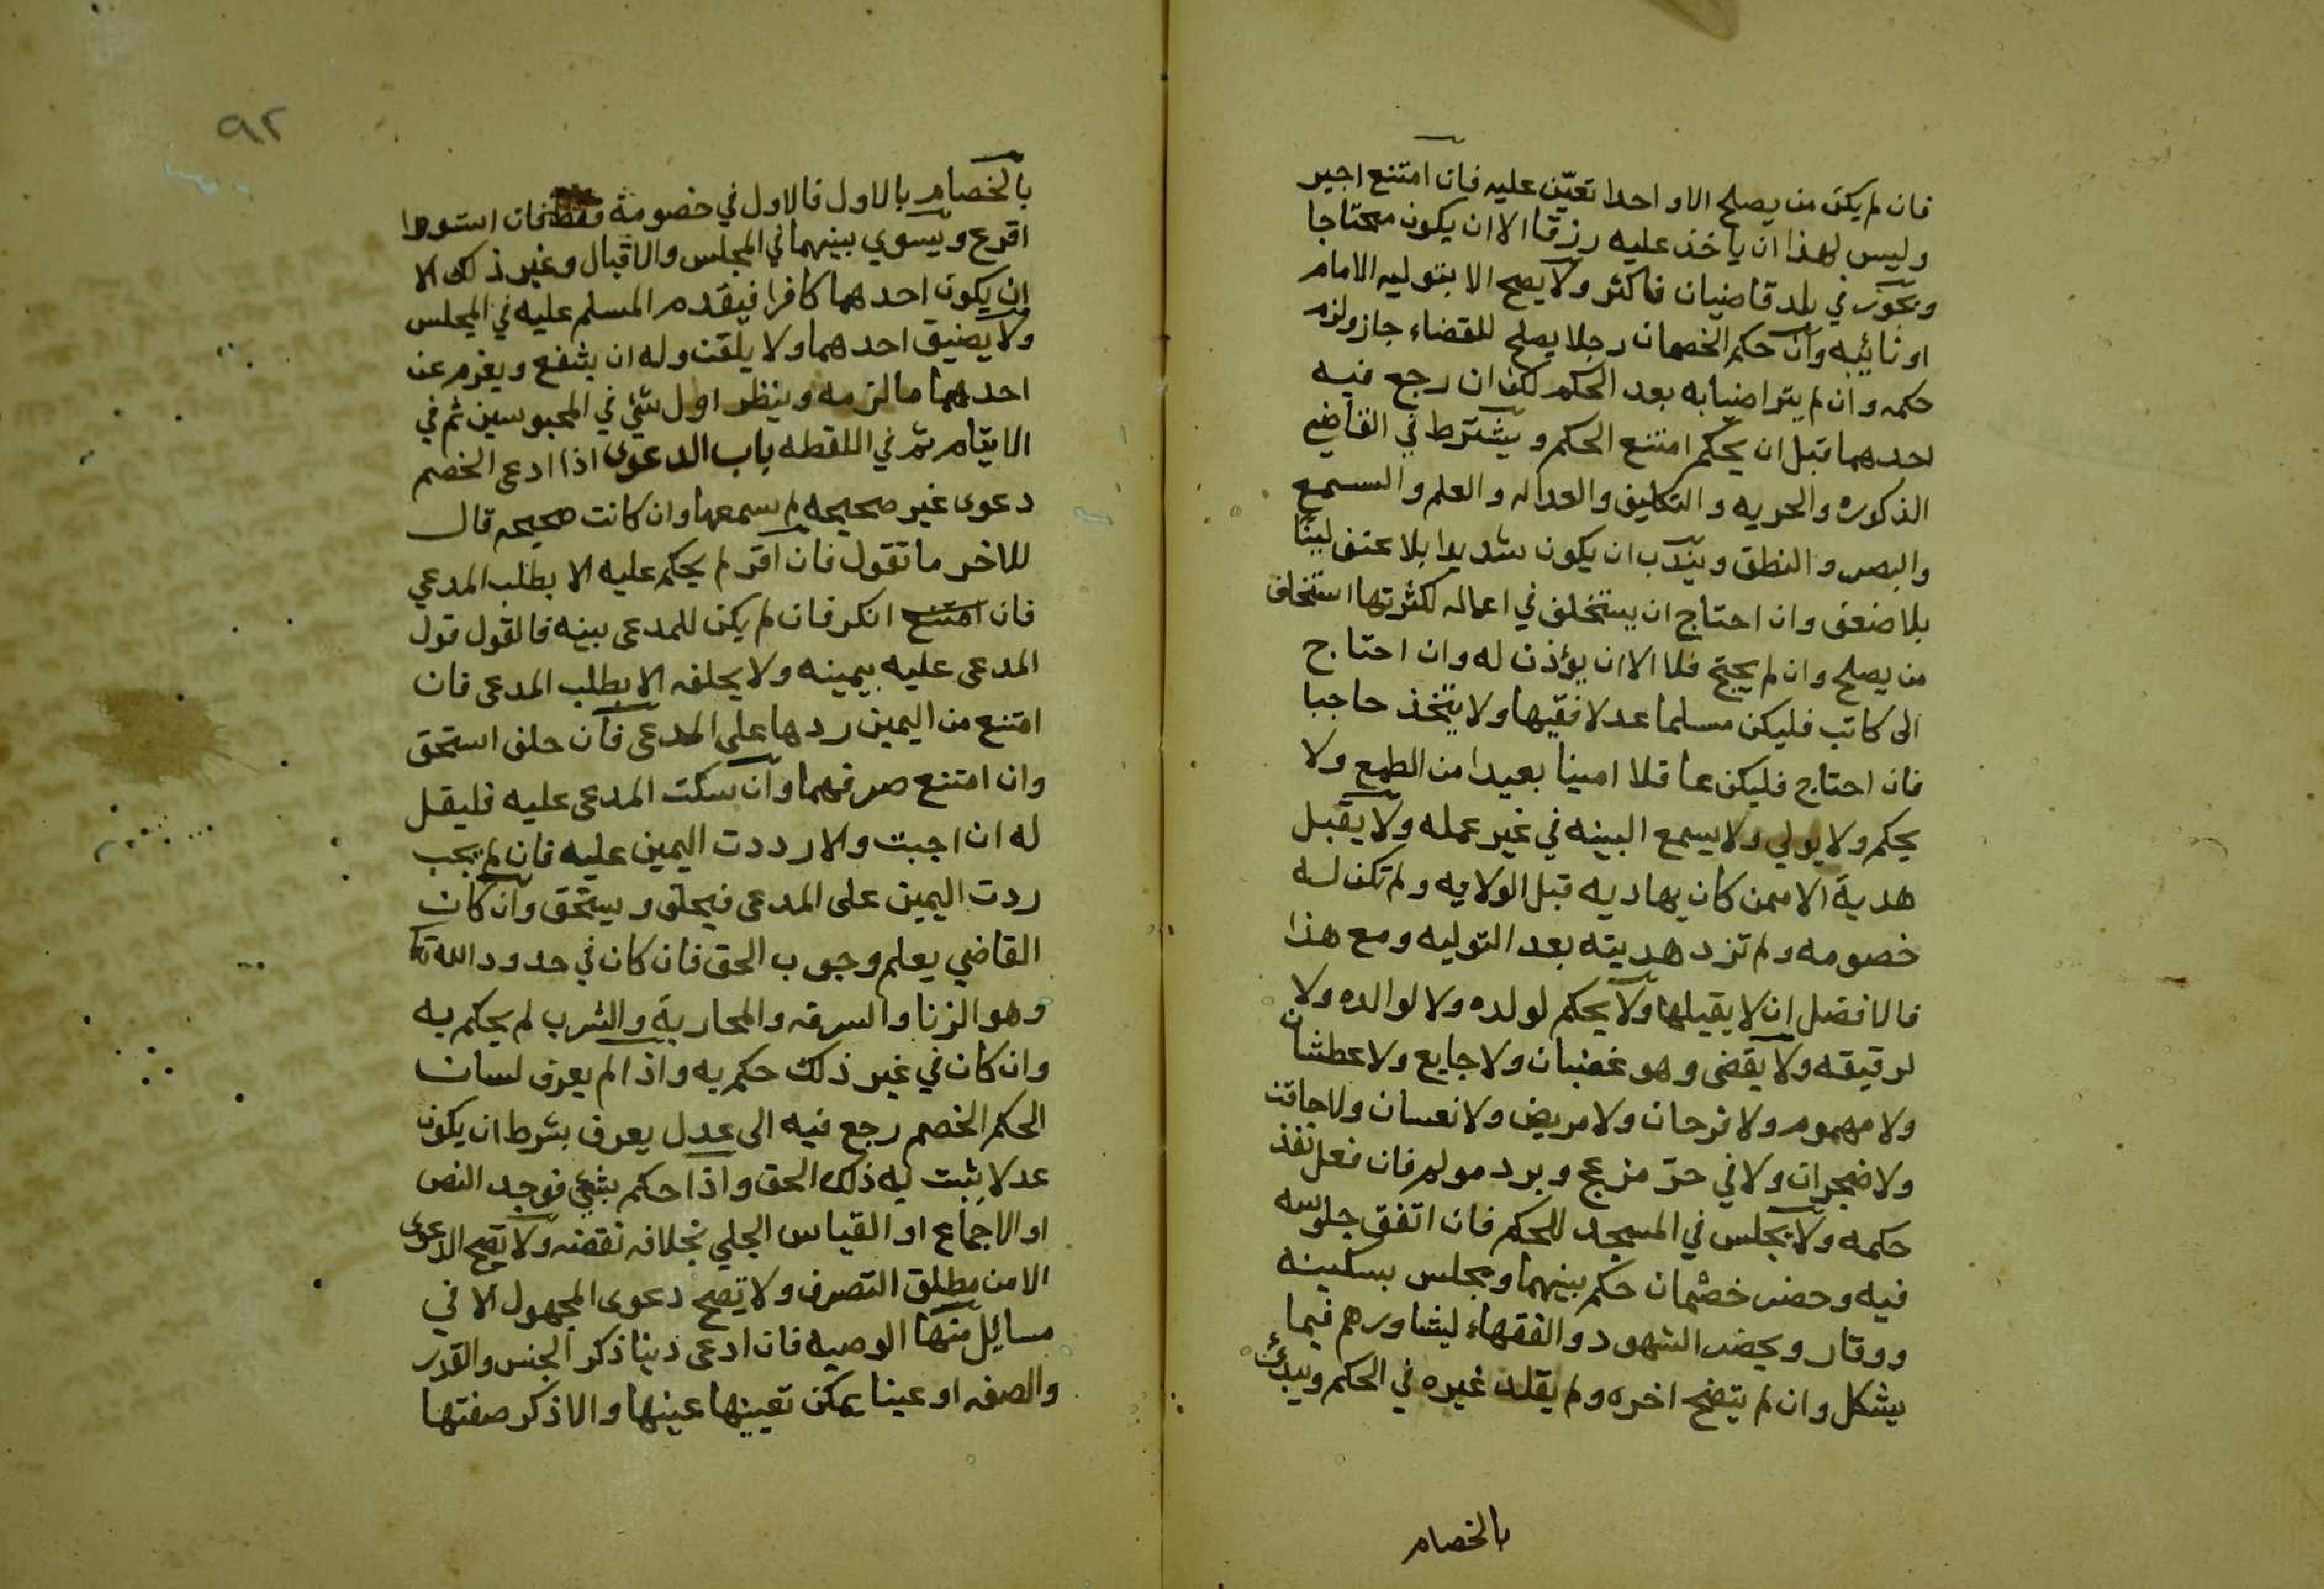 فان لم يكن من يصلح الا واحدا تعيّن عليه فان امتنع اجبر
وليس لهذا ان ياخذ عليه رزقا الا ان يكون محتاجا
ويجوز في بلد قاضيان فاكثر ولا يصح الا بتوليه الامام
او نائبه وان حكم الخصمان رجلا يصلح للقضاء جاز ولزم
حكمه وان لم يتراضيا به بعد الحكم لكن ان رجع فيه
احدهما قبل ان يحكم امتنع الحكم ويشترط في القاضي
الذكوره والحريه والتكليف والعداله والعلم والسمع
والبصر والنطق ويندب ان يكون شديدا بلا عنف لينا
بلا ضعف وان احتاج ان يستخلف في اعماله لكثرتها استخلف
من يصلح وان لم يحتج فلا الا ان يؤذن له وان احتاج
الى كاتب فليكن مسلما عدلا فقيها ولا يتخذ حاجبا
فان احتاج فليكن عاقلا امينا بعيدا من الطمع ولا
يحكم ولا يولي ولا يسمع البينه في غير عمله ولا يقبل
هدية الا ممن كان يهاديه قبل الولايه ولم تكن له
خصومه ولم تزد هديته بعد التوليه ومع هذا
فالافضل ان لا يقبلها ولا يحكم لولده ولا لوالده ولا
لرقيقه ولا يقضى وهو غضبان ولا جايع ولا عطشان
ولا مهموم ولا فرحان ولا مريض ولا نعسان ولا حاقن
ولا ضجران ولا في حرّ مزعج وبرد مولم فان فعل نفذ
حكمه ولا يجلس في المسجد للحكم فان اتفق جلوسه
فيه وحضر خصمان حكم بينهما ويجلس بسكينه
ووقار ويحضر الشهود والفقهاء ليشاورهم فيما
يشكل وان لم يتضح اخره ولم يقلد غيره في الحكم ويبدئ
بالخصام
٩٢
بالخصام بالاول فالاول في خصومة فقط فان استووا
اقرع ويسوي بينهما في المجلس والاقبال وغير ذلك الا
ان يكون احدهما كافرا فيقدم المسلم عليه في المجلس
ولا يضيق احدهما ولا يلقن وله ان يشفع ويغرم عن
احدهما ما لزمه وينظر اول شئي في المحبوسين ثم في
الايتام ثم في اللقطه باب الدعوى اذا ادعى الخصم
دعوى غير صحيحه لم يسمعها وان كانت صحيحه قال
للاخر ما تقول فان اقر لم يحكم عليه الا بطلب المدعي
فان امتنع انكر فان لم يكن للمدعى بينه فالقول قول
المدعى عليه بيمينه ولا يحلفه الا بطلب المدعى فان
امتنع من اليمين ردها على المدعى فان حلف استحق
وان امتنع صرفهما وان سكت المدعى عليه فليقل
له ان اجبت والا رددت اليمين عليه فان لم يجب
ردت اليمين على المدعى فيحلف ويستحق وان كان
القاضي يعلم وجوب الحق فان كان في حدود الله تعا
وهو الزنا والسرقه والمحاربة والشرب لم يحكم به
وان كان في غير ذلك حكم به واذا لم يعرف لسان
الحكم الخصم رجع فيه الى عدل يعرف بشرط ان يكون
عدلا يثبت به ذلك الحق واذا حكم بشئي فوجد النص
او الاجماع او القياس الجلي بخلافه نقضه ولا تصح الدعوى
الا من مطلق التصرف ولا تصح دعوى المجهول الا في
مسايل منها الوصيه فان ادعى دينا ذكر الجنس والقدر
والصفه او عينا يمكن تعيينها عينها والا ذكر صفتها